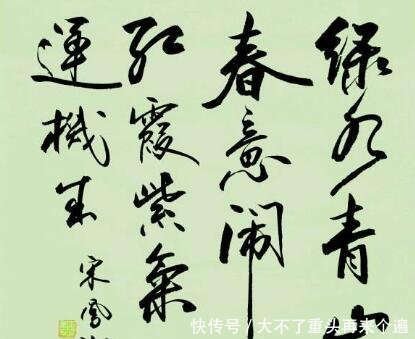 绿水青山
春意闹
红霞紫氣
運機来
宋鳳
快传号/大不了重头再来个遍